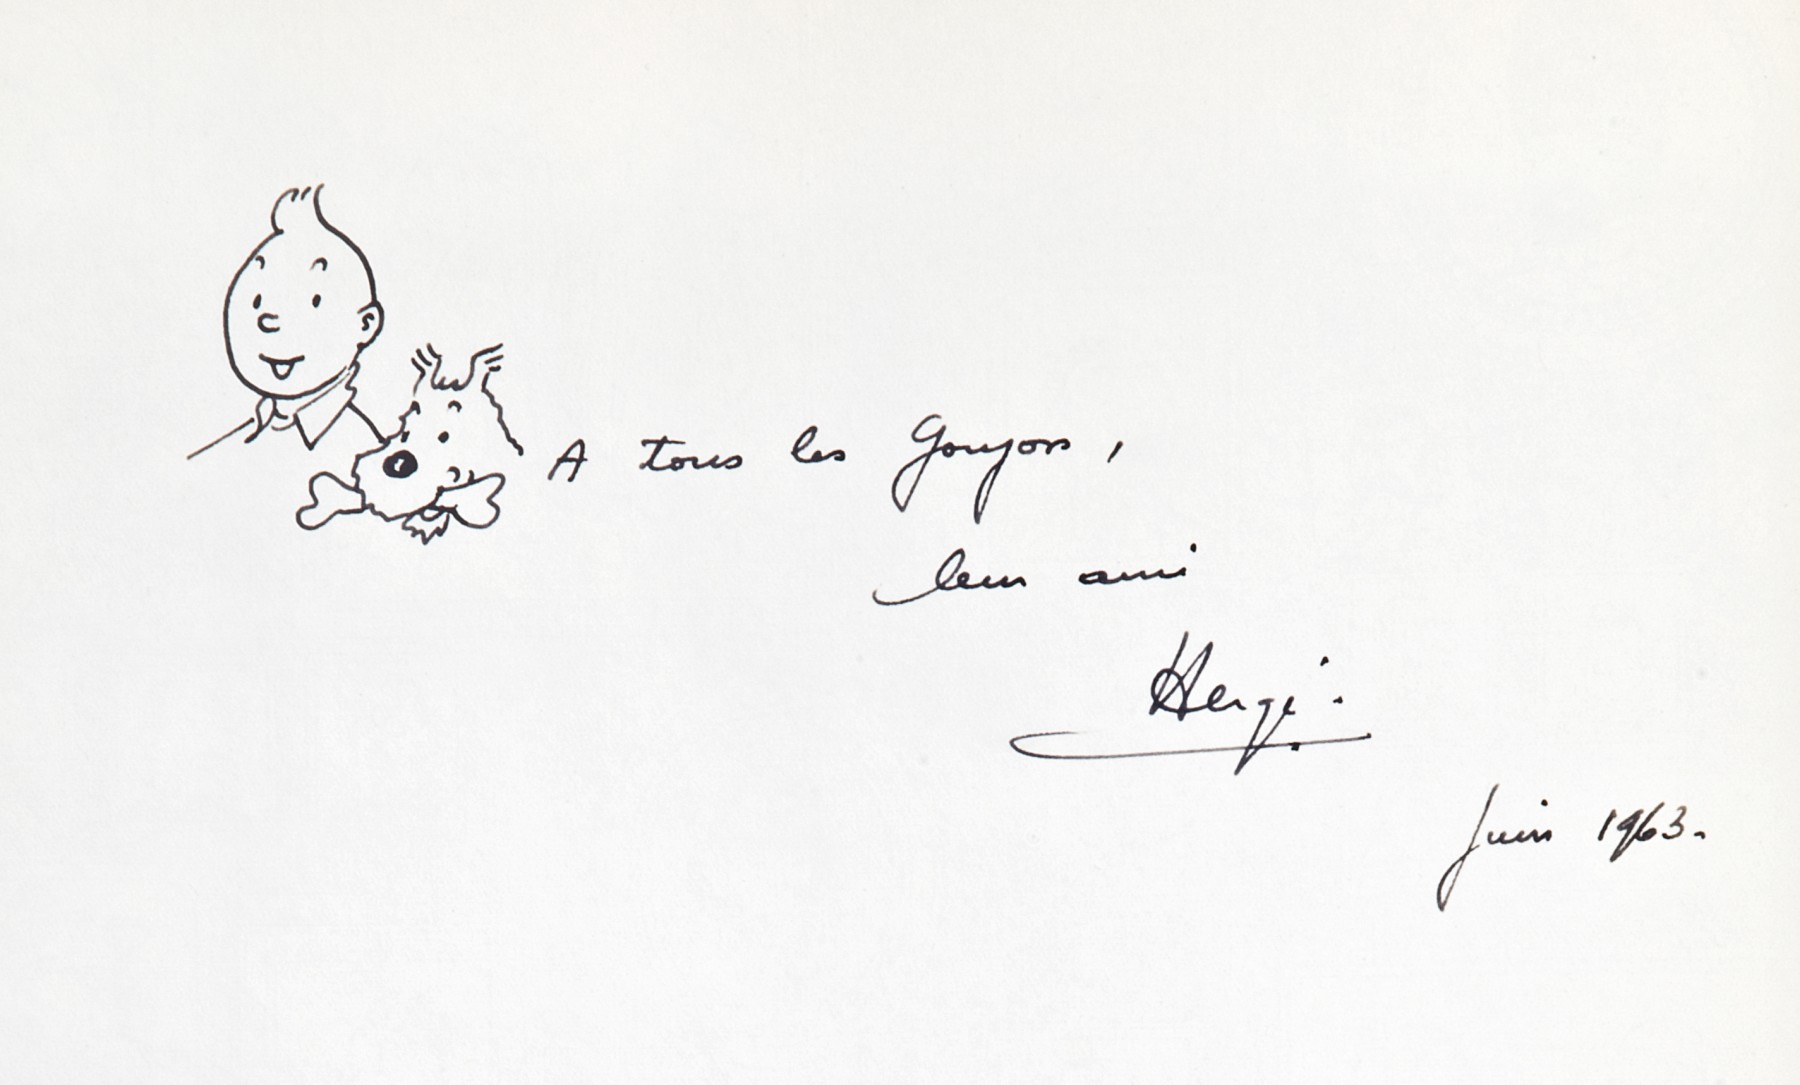 A tous les Goujons,
leur ami
Hergé.
Juin 1963.